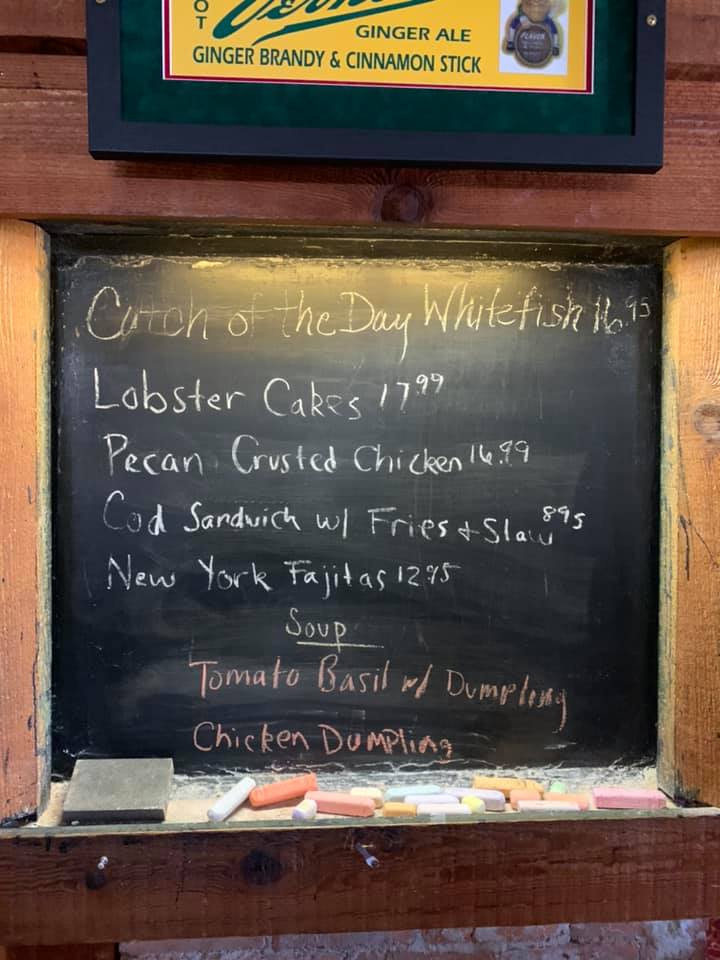 OT
Vern
GINGER ALE
GINGER BRANDY & CINNAMON STICK
Catch of the Day Whitefish 16.95
Lobster Cakes 17.99
Pecan Crusted Chicken 16.99
Cod Sandwich w/ Fries + Slaw 895
New York Fajitas 12.95
Soup
Tomato Basil w/ Dumpling
Chicken Dumpling